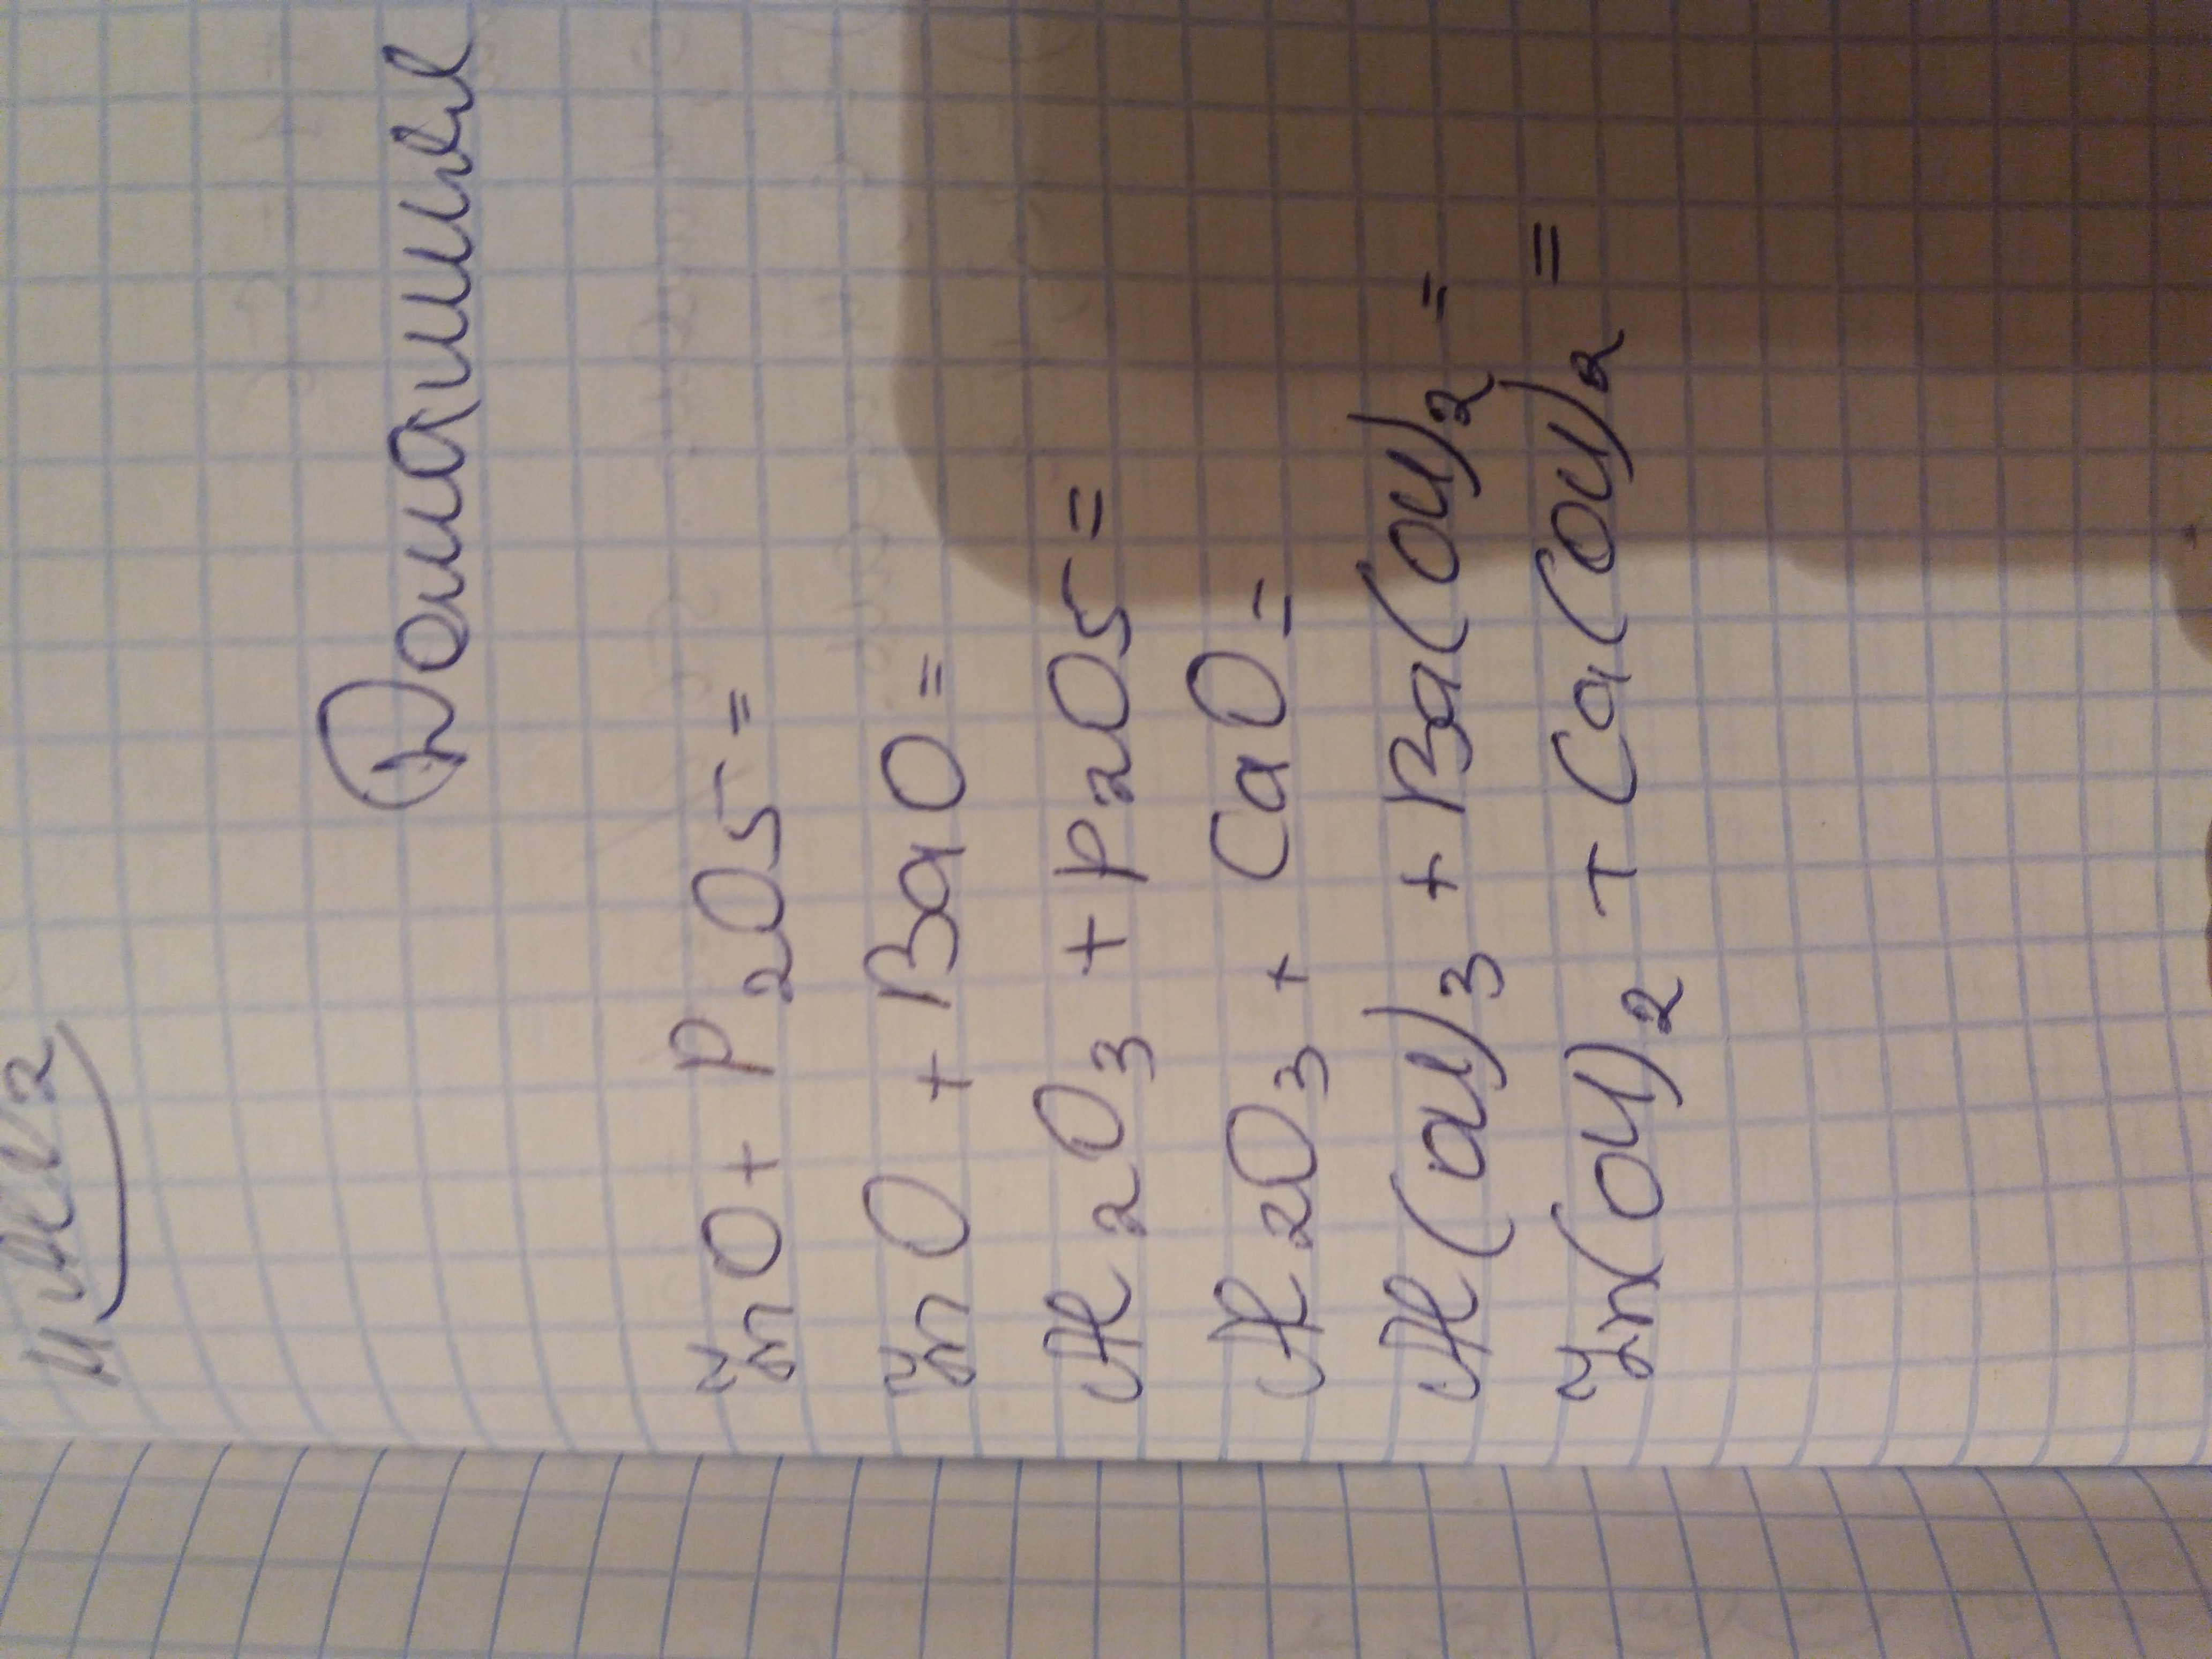 Домашня
ZnO + P2O5 =
ZnO + BaO =
Al2O3 + P2O5 =
Al2O3 + CaO =
Al(OH)3 + Ba(OH)2 =
Zn(OH)2 + Ca(OH)2 =